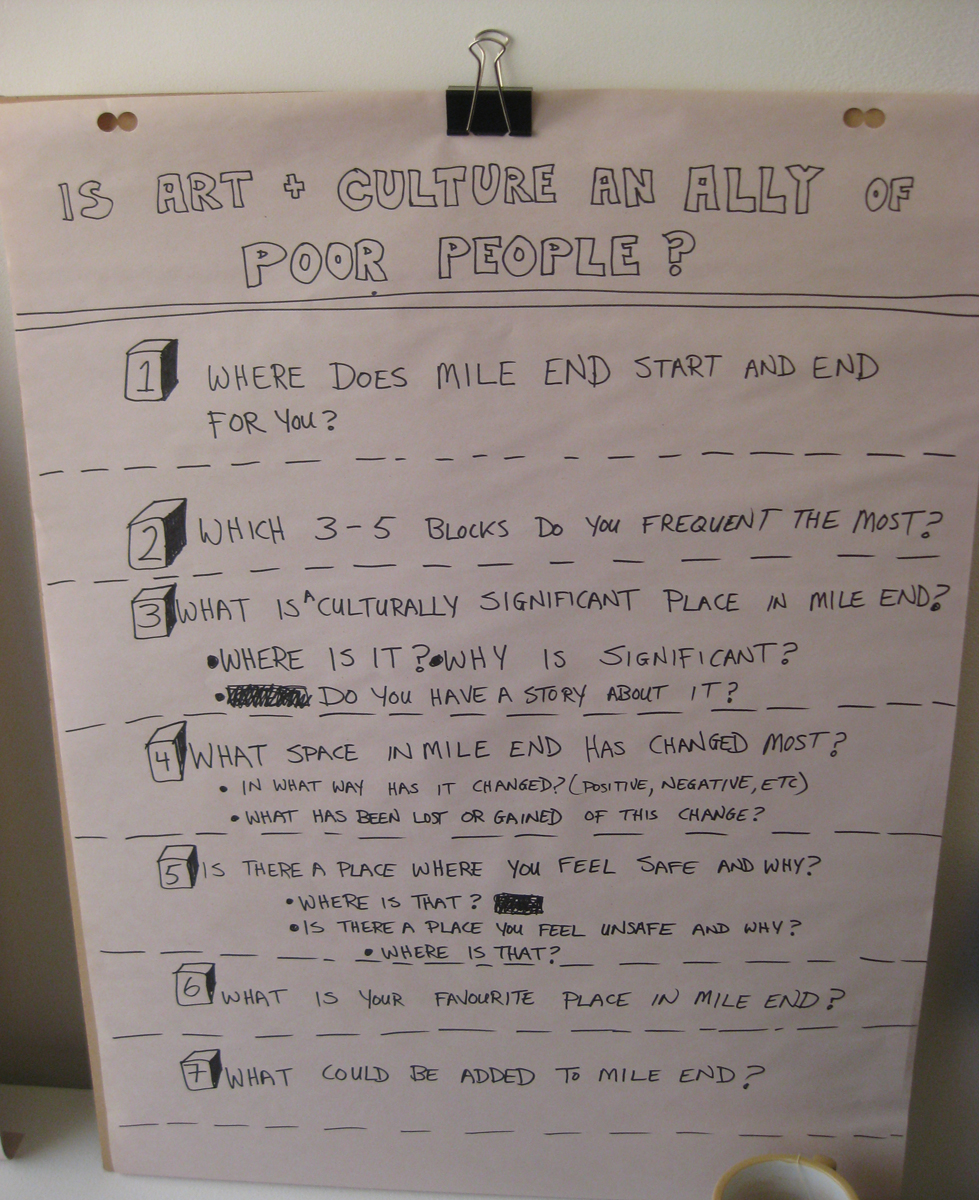 IS ART + CULTURE AN ALLY OF
POOR PEOPLE?
1 WHERE DOES MILE END START AND END
FOR YOU?
2 WHICH 3-5 BLOCKS DO YOU FREQUENT THE MOST?
3 WHAT IS ^A CULTURALLY SIGNIFICANT PLACE IN MILE END?
•WHERE IS IT? •WHY IS SIGNIFICANT?
• DO YOU HAVE A STORY ABOUT IT?
4 WHAT SPACE IN MILE END HAS CHANGED MOST?
• IN WHAT WAY HAS IT CHANGED? (POSITIVE, NEGATIVE, ETC)
• WHAT HAS BEEN LOST OR GAINED OF THIS CHANGE?
5 IS THERE A PLACE WHERE YOU FEEL SAFE AND WHY?
• WHERE IS THAT?
• IS THERE A PLACE YOU FEEL UNSAFE AND WHY?
• WHERE IS THAT?
6 WHAT IS YOUR FAVOURITE PLACE IN MILE END?
7 WHAT COULD BE ADDED TO MILE END?